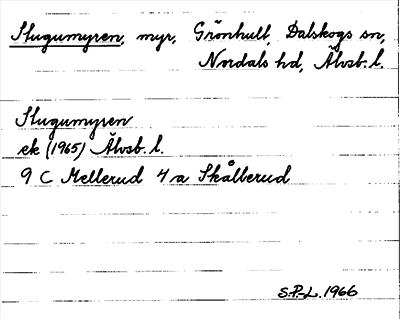 Stugumyren, myr, Grönhult, Dalskogs sn,
Nordals hd, Älvsb. l.
Stugumyren
ek (1965) Älvsb. l.
9 C Mellerud 4 a Skållerud
S.P-L. 1966